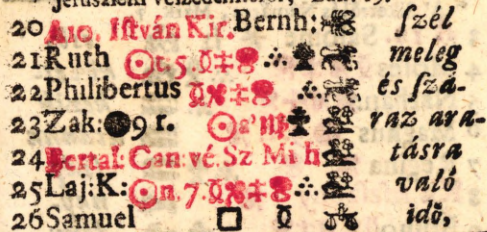 20 A10. Iſtván Kir. Bernh: ſzél
21 Ruth ☉ t. 5 ☿ ‡ ∴ meleg
22 Philibertus ☿ ‡ ∴ és ſzá-
23 Zak: ● 9 r. ☉ a' ♍ raz ara-
24 Bertal: Can: vé. Sz Mi h tásra
25 Laj: K: ☉ n. 7. ☿ ‡ ∴ való
26 Samuel □ ☿ idő,